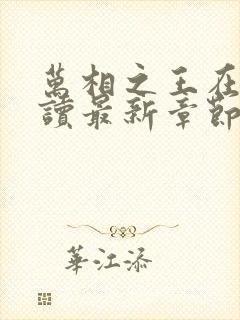 萬相之王在
讀最新章節
華江添